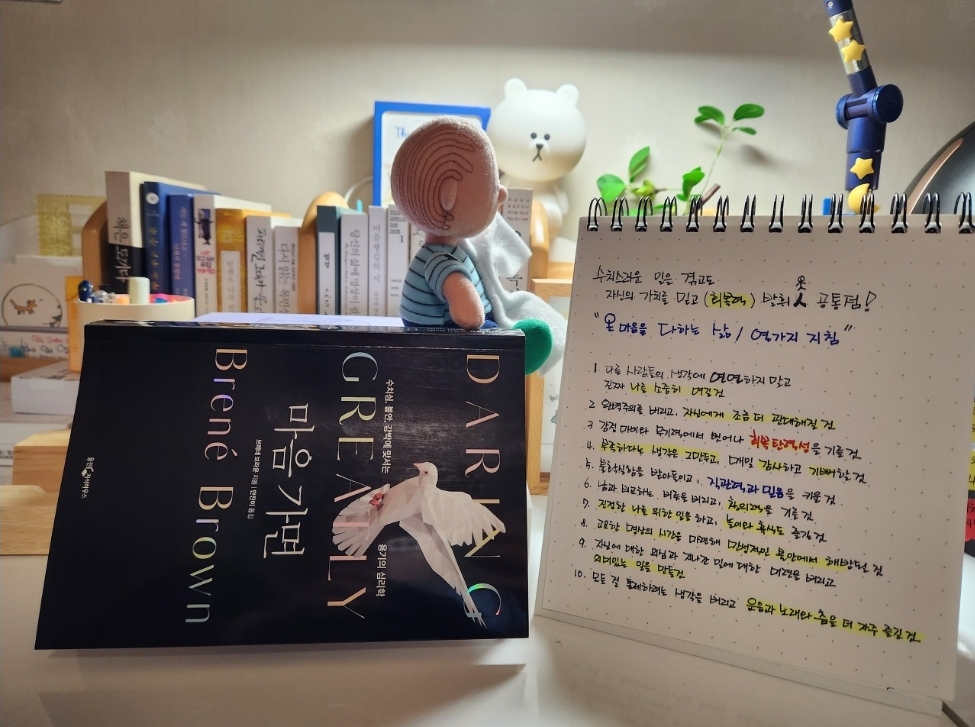 DARING
GREATLY
수치심, 불안, 강박에 맞서는
용기의 심리학
마음가면
브레네 브라운 지음 | 안진이 옮김
Brené Brown
웅진 지식하우스
수치스러운 일을 겪고도
자신의 가치를 믿고 (회복력) 발휘 人 공통점!
"온 마음을 다하는 삶 / 열가지 지침"
1 다른 사람들의 생각에 연연하지 말고
진짜 나를 소중히 여길 것
2. 완벽주의를 버리고, 자신에게 조금 더 관대해질 것
3 감정 마비와 무기력에서 벗어나 회복탄력성을 기를 것
4. 부족하다는 생각은 그만두고, 매일 감사하고 기뻐할 것
5. 불확실함을 받아들이고, 직관력과 믿음을 키울 것
6. 남과 비교하는 버릇을 버리고, 창의력을 기를 것
7. 진정한 나를 위한 일을 하고, 놀이와 휴식도 즐길 것
8. 고요한 명상의 시간을 마련해 만성적인 불안에서 해방될 것
9. 자신에 대한 의심과 지나간 일에 대한 미련을 버리고
의미있는 일을 만들것
10. 모든 걸 통제하려는 생각을 버리고 웃음과 노래와 춤을 더 자주 즐길 것